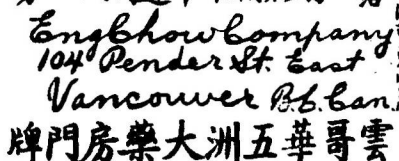 Eng Chow Company
104 Pender St. East
Vancouver B.C. Can.
牌門房藥大洲五華哥雲